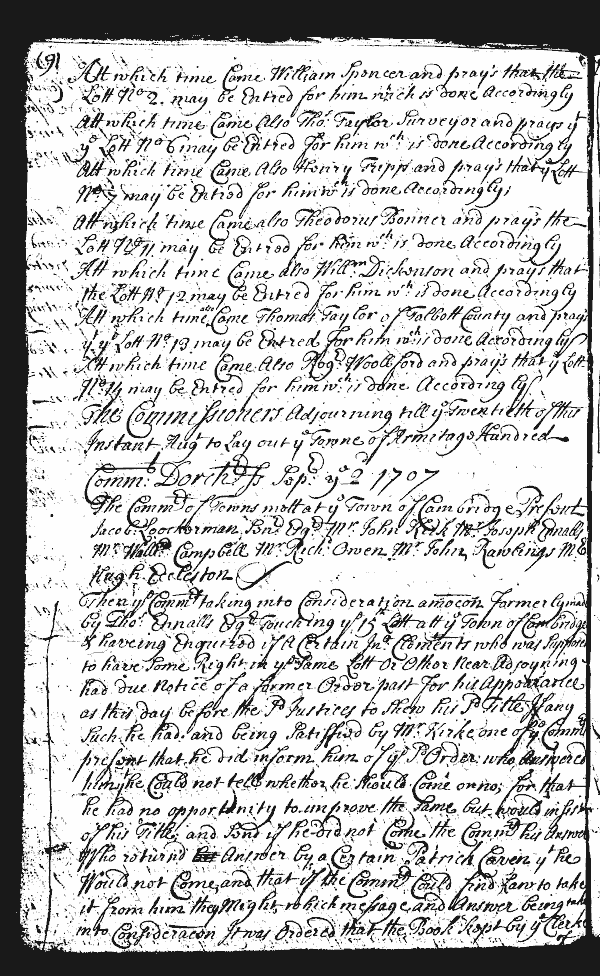 (9)
Att which time Came William Spencer and pray's that the
Lott No 2. may be Entred for him wch is done Accordingly
Att which time Came Also Tho: Taylor Surveyor and prays yt
ye Lott No 6 may be Entred for him wch is done Accordingly
Att which time Came Also Henry Fripp and pray's that ye Lott
No 7 may be Entred for him wch is done Accordingly;
Att which time Came also Theodorus Bonner and pray's the
Lott No 11 may be Entred for him wch is done Accordingly
Att which time Came also Willm Dickenson and prays that
the Lott No 12 may be Entred for him wch is done Accordingly
Att which time also Came Thomas Taylor of Talbott County and prays
yt ye Lott No 13 may be Entred for him wch is done Accordingly
Att which time Came Also Rogr Woolford and prays that ye Lott
No 14 may be Entred for him wch is done Accordingly
The Commissioners Adjourning till ye Twentieth of this
Instant Augt to Lay out ye Towne of Armitage Hundred
Commt Dorchtr Ss Sepr ye 2d 1707
The Commrs of Towns mett at ye Town of Cambridge Present
Jacob Loockerman Senr Esqr Mr John Kirk Mr Joseph Ennalls
Mr Waltr Campbell Mr Richd Owen Mr John Rawlings Mr
Hugh Eccleston
Then ye Commrs taking into Consideration amocon formerly made
by Tho: Ennalls Esqr Touching ye 15 Lott att ye Town of Cambridge
& haveing Enquired if A Certain Jno Clements who was Suppose
to have Some Right in ye Same Lott Or Other Near Adjoyning
had due Notice of a former Order past for his Appearance
as this day before the Sd Justices to Shew his Sd Title If any
Such he had. and being Satisfied by Mr Kirke one of ye Commrs
present that he did inform him of ye Sd Order, who Answered
him he Could not tell whether he Should Come or no; for that
he had no opportunity to improve the Same but would insist
of his Title; and Send if he did not Come the Commrs his Answer
Who return'd Answer by a Certain Patrick Caven yt he
Would not Come, and that if the Commrs Could find Law to take
it from him they Might, which message and Answer being taken
into Consideracon It was Ordered that the Book Kept by ye Clerke